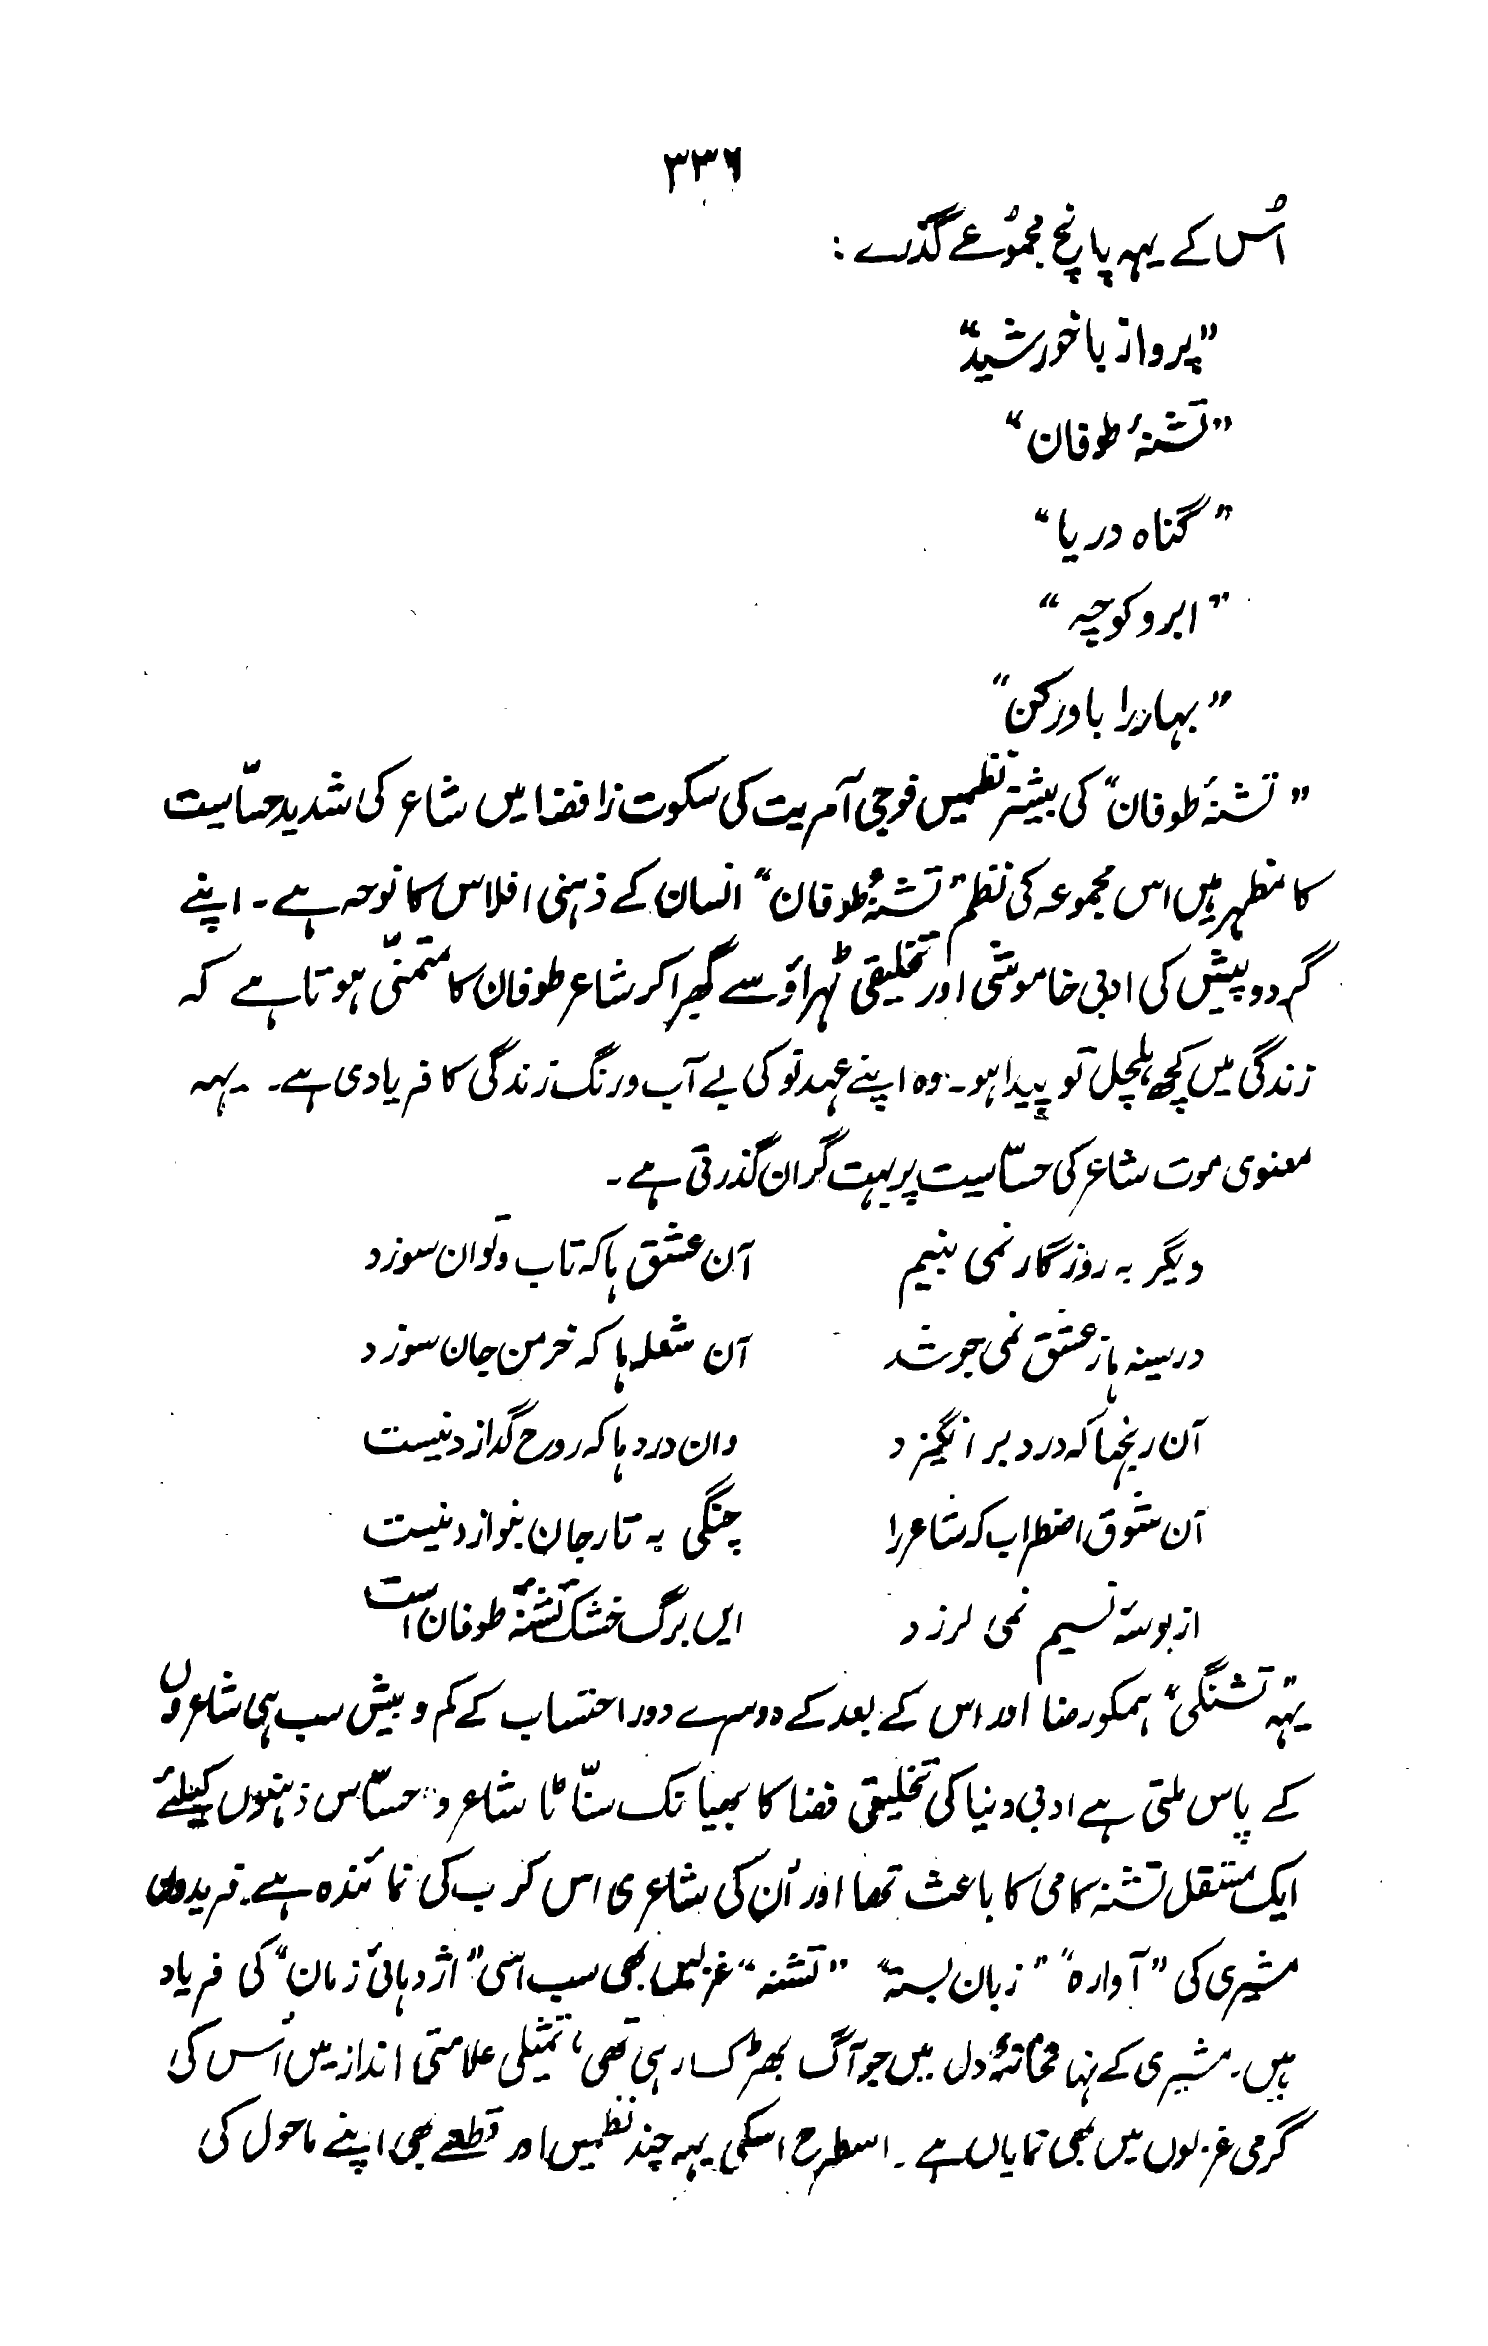 ۳۳۶
اُس کے یہہ پانچ مجموُعے گذرے :
”پرواز با خورشید“
”تشنۂ طوفان“
”گناہ دریا“
”ابر و کوچہ“
”بہار را باور کن“
”تشنۂ طوفان“ کی بیشتر نظمیں فوجی آمریت کی سکوت زا فضا میں شاعر کی شدید حسّاسیت
کا مظہر ہیں اس مجموعہ کی نظم ”تشنۂ طوفان“ انسان کے ذہنی افلاس کا نوحہ ہے۔ اپنے
گرد و پیش کی ادبی خاموشی اور تخلیقی ٹہراؤ سے گھبرا کر شاعر طوفان کا متمنّی ہوتا ہے کہ
زندگی میں کچھ ہلچل تو پیدا ہو۔ وہ اپنے عہد نو کی بے آب و رنگ زندگی کا فریادی ہے۔ یہہ
معنوی موت شاعر کی حسّاسیت پر بہت گران گذرتی ہے۔
دیگر بہ روزگار نمی بنیم آن عشق ہا کہ تاب و توان سوزد
در سینہ ہا ز عشق نمی جوشد آن شعلہ ہا کہ خرمن جان سوزد
آن رنجہا کہ درد بر انگیزد وان درد ہا کہ روح گدازد نیست
آن شوق اضطراب کہ شاعر را چنگی بہ تار جان بنوازد نیست
از بوسۂ نسیم نمی لرزد ایں برگ خشک تشنۂ طوفان است
یہہ ”تشنگی“ ہمکو رضا اور اس کے بعد کے دوسرے دور احتساب کے کم و بیش سب ہی شاعروں
کے پاس ملتی ہے ادبی دنیا کی تخلیقی فضا کا بھیانک سنّاٹا شاعر و حسّاس ذہنوں کیلئے
ایک مستقل تشنہ کامی کا باعث تھا اور اُن کی شاعری اس کرب کی نمائندہ ہے۔ فریدوں
مشیری کی ”آوارہ“ ”زبان بستہ“ ”تشنہ“ غزلیں بھی سب اسی ”اژدہائ زمان“ کی فریاد
ہیں۔ مشیری کے نہا نخانۂ دل میں جو آگ بھڑک رہی تھی، تمثیلی علامتی انداز میں اُس کی
گرمی غزلوں میں بھی نمایاں ہے۔ اسطرح اسکی یہہ چند نظمیں اور قطعے بھی اپنے ماحول کی